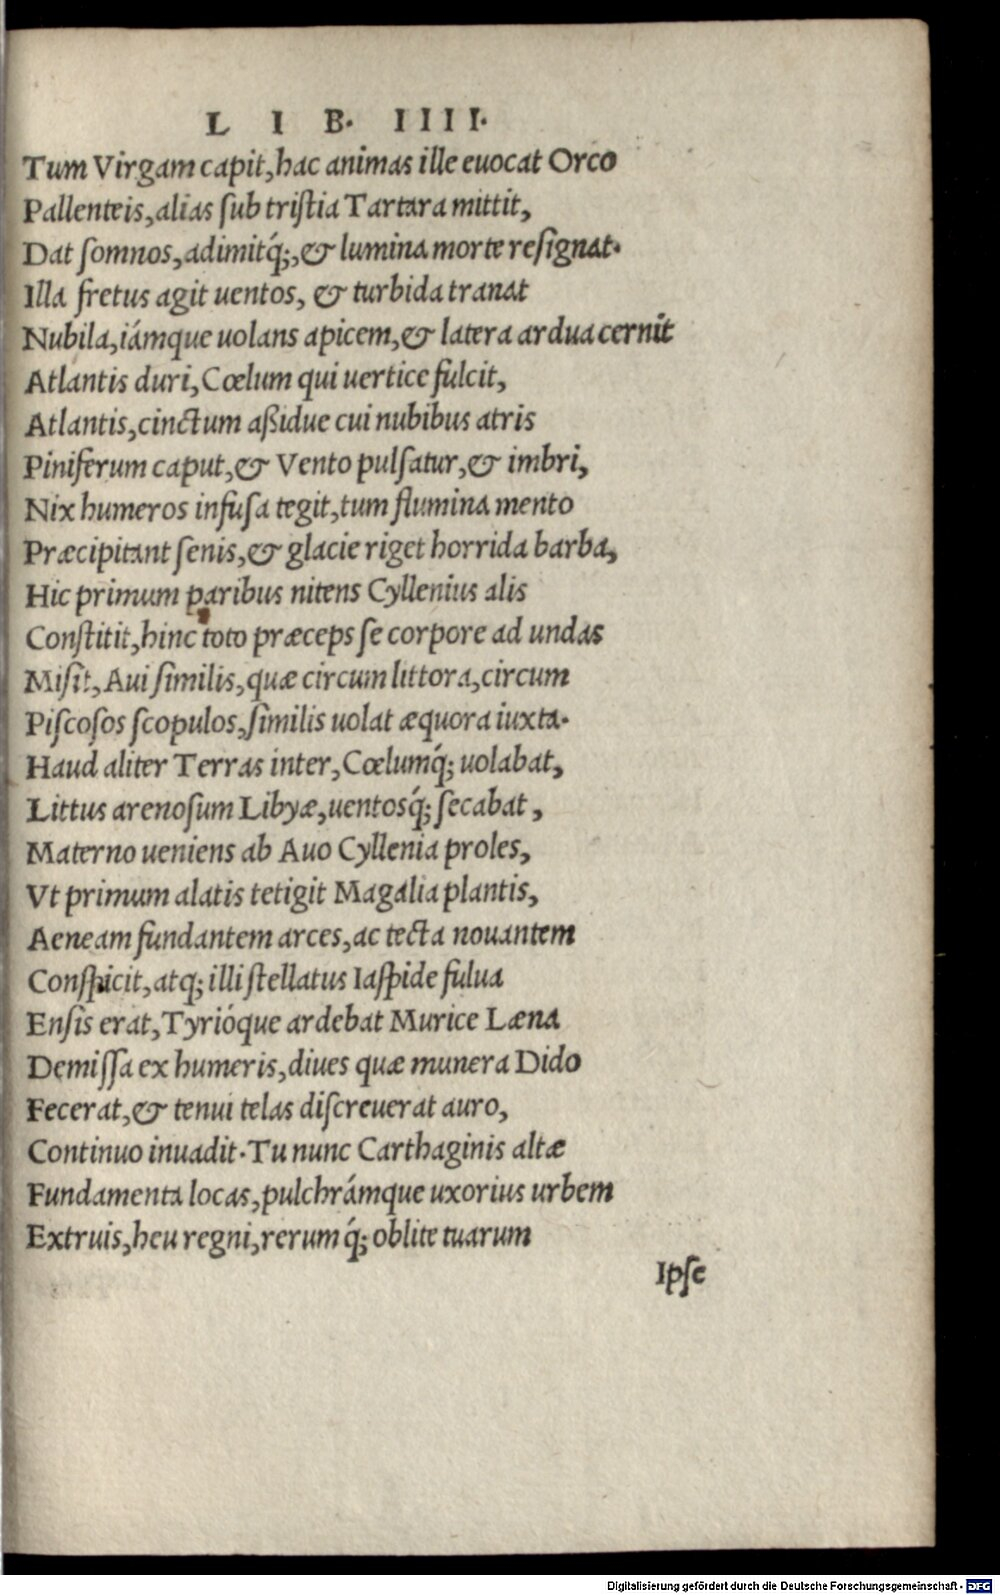 L I B. I I I I.
Tum Virgam capit, hac animas ille euocat Orco
Pallenteis, alias sub tristia Tartara mittit,
Dat somnos, adimitq́;, & lumina morte resignat.
Illa fretus agit uentos, & turbida tranat
Nubila, iámque uolans apicem, & latera ardua cernit
Atlantis duri, Cœlum qui uertice fulcit,
Atlantis, cinctum aßidue cui nubibus atris
Piniferum caput, & Vento pulsatur, & imbri,
Nix humeros infusa tegit, tum flumina mento
Præcipitant senis, & glacie riget horrida barba,
Hic primum paribus nitens Cyllenius alis
Constitit, hinc toto præceps se corpore ad undas
Misit, Aui similis, quæ circum littora, circum
Piscosos scopulos, similis uolat æquora iuxta.
Haud aliter Terras inter, Cœlumq́; uolabat,
Littus arenosum Libyæ, uentosq́; secabat,
Materno ueniens ab Auo Cyllenia proles,
Vt primum alatis tetigit Magalia plantis,
Aeneam fundantem arces, ac tecta nouantem
Conspicit, atq; illi stellatus Iaspide fulua
Ensis erat, Tyrióque ardebat Murice Læna
Demissa ex humeris, diues quæ munera Dido
Fecerat, & tenui telas discreuerat auro,
Continuo inuadit. Tu nunc Carthaginis altæ
Fundamenta locas, pulchrámque uxorius urbem
Extruis, heu regni, rerum q́; oblite tuarum
Ipse
Digitalisierung gefördert durch die Deutsche Forschungsgemeinschaft - DFG